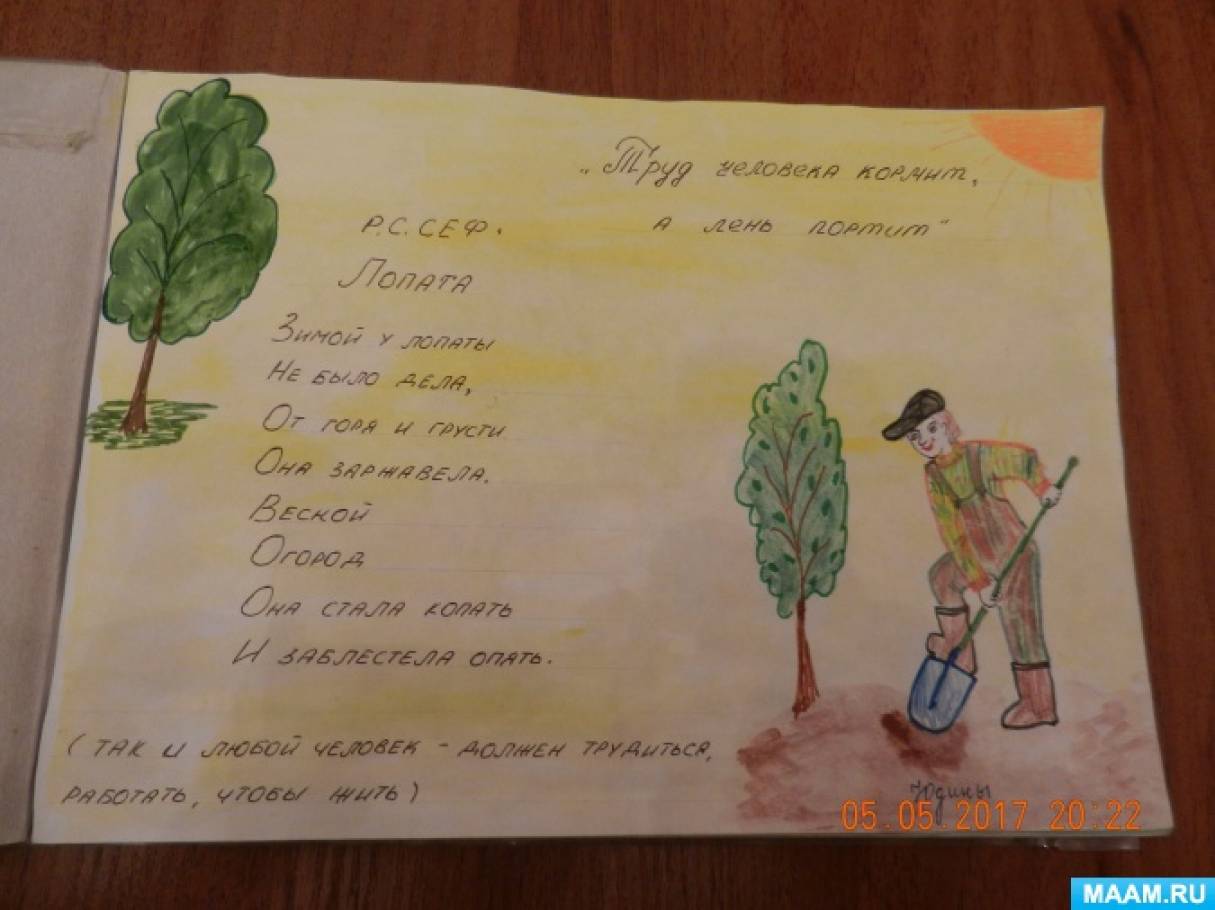 „Труд человека кормит,
а лень портит"
Р.С.СЕФ.
Лопата
Зимой у лопаты
Не было дела,
От горя и грусти
Она заржавела.
Весной
Огород
Она стала копать
И заблестела опять.
(так и любой человек - должен трудиться,
работать, чтобы жить)
Юдины
05.05.2017 20:22
MAAM.RU